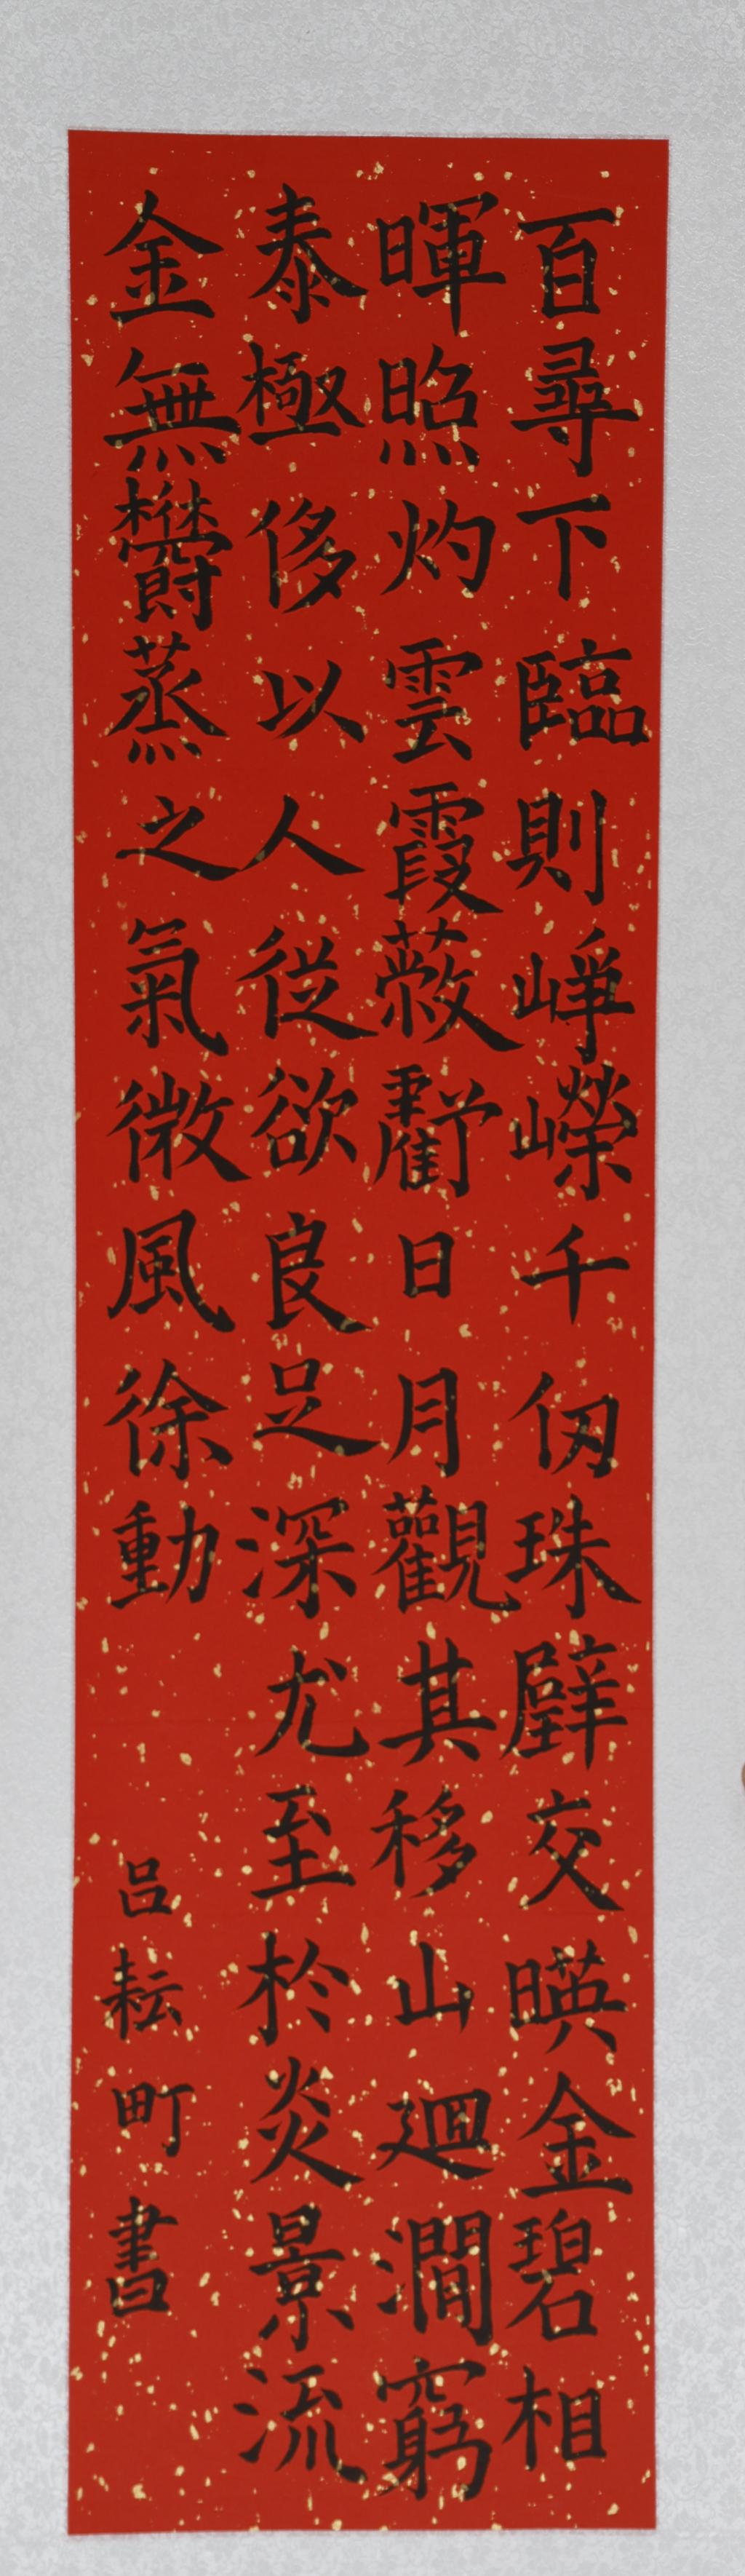 百尋下臨則崢嶸千仞珠壁交暎金碧相
暉照灼雲霞蔽虧日月觀其移山迴澗窮
泰極侈以人從欲良足深尤至於炎景流
金無欎蒸之氣微風徐動
呂耘町書